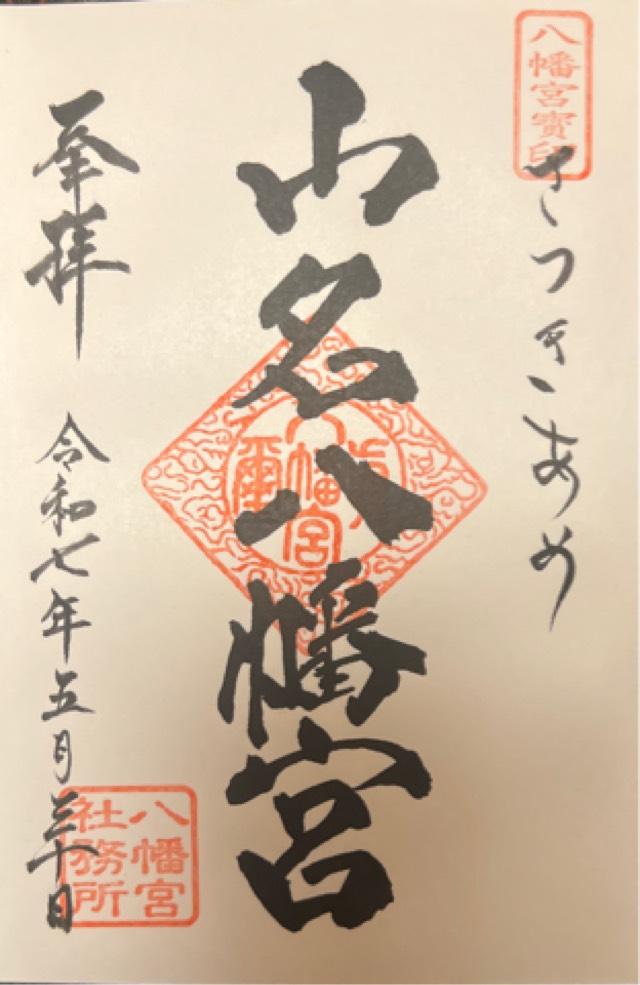 八幡宮寳印
さつきあめ
山名八幡宮
奉拝
令和七年五月三十日
八幡宮
社務所